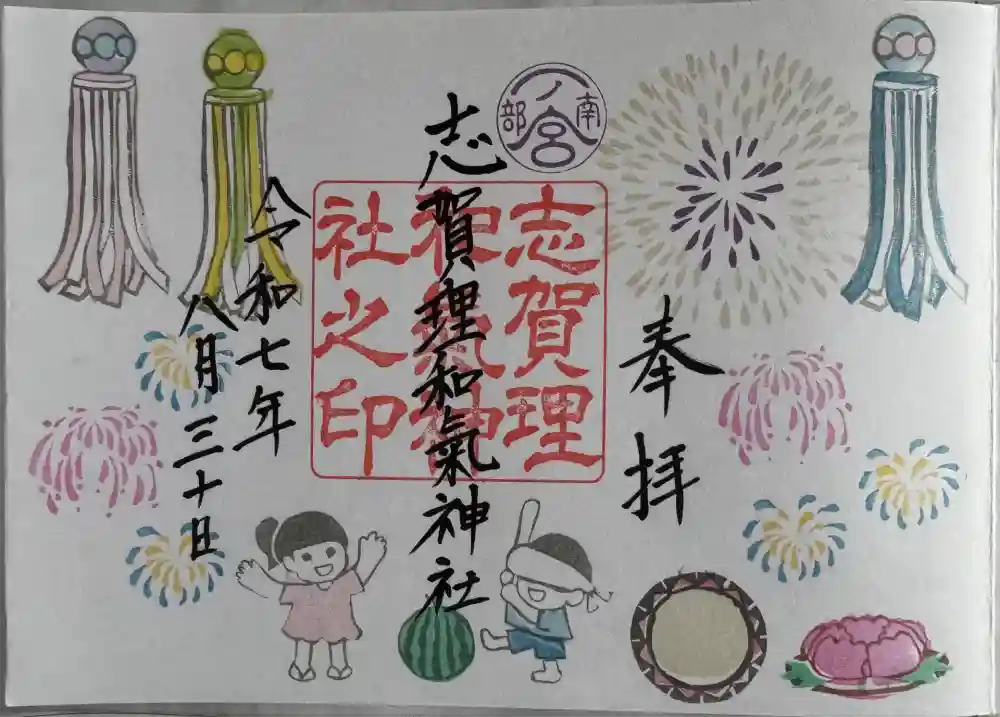 奉拝
南部
一ノ宮
志賀理和氣神社
志賀理
和氣神
社之印
令和七年
八月三十日